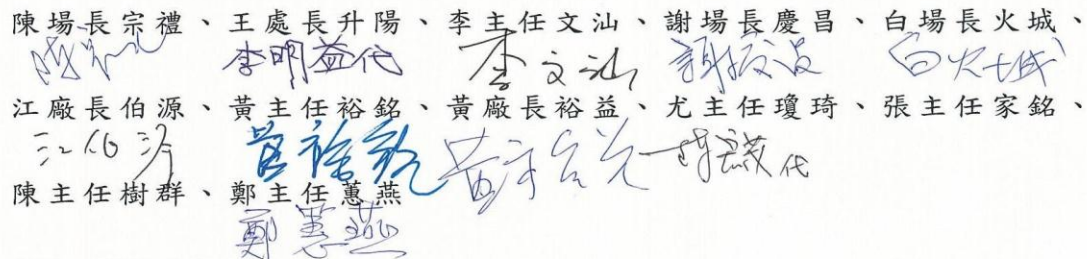 陳場長宗禮、王處長升陽、李主任文汕、謝場長慶昌、白場長火城、
李明益代 李文汕 白火城
江廠長伯源、黃主任裕銘、黃廠長裕益、尤主任瓊琦、張主任家銘、
江伯源 黃裕銘 代
陳主任樹群、鄭主任蕙燕
鄭蕙燕